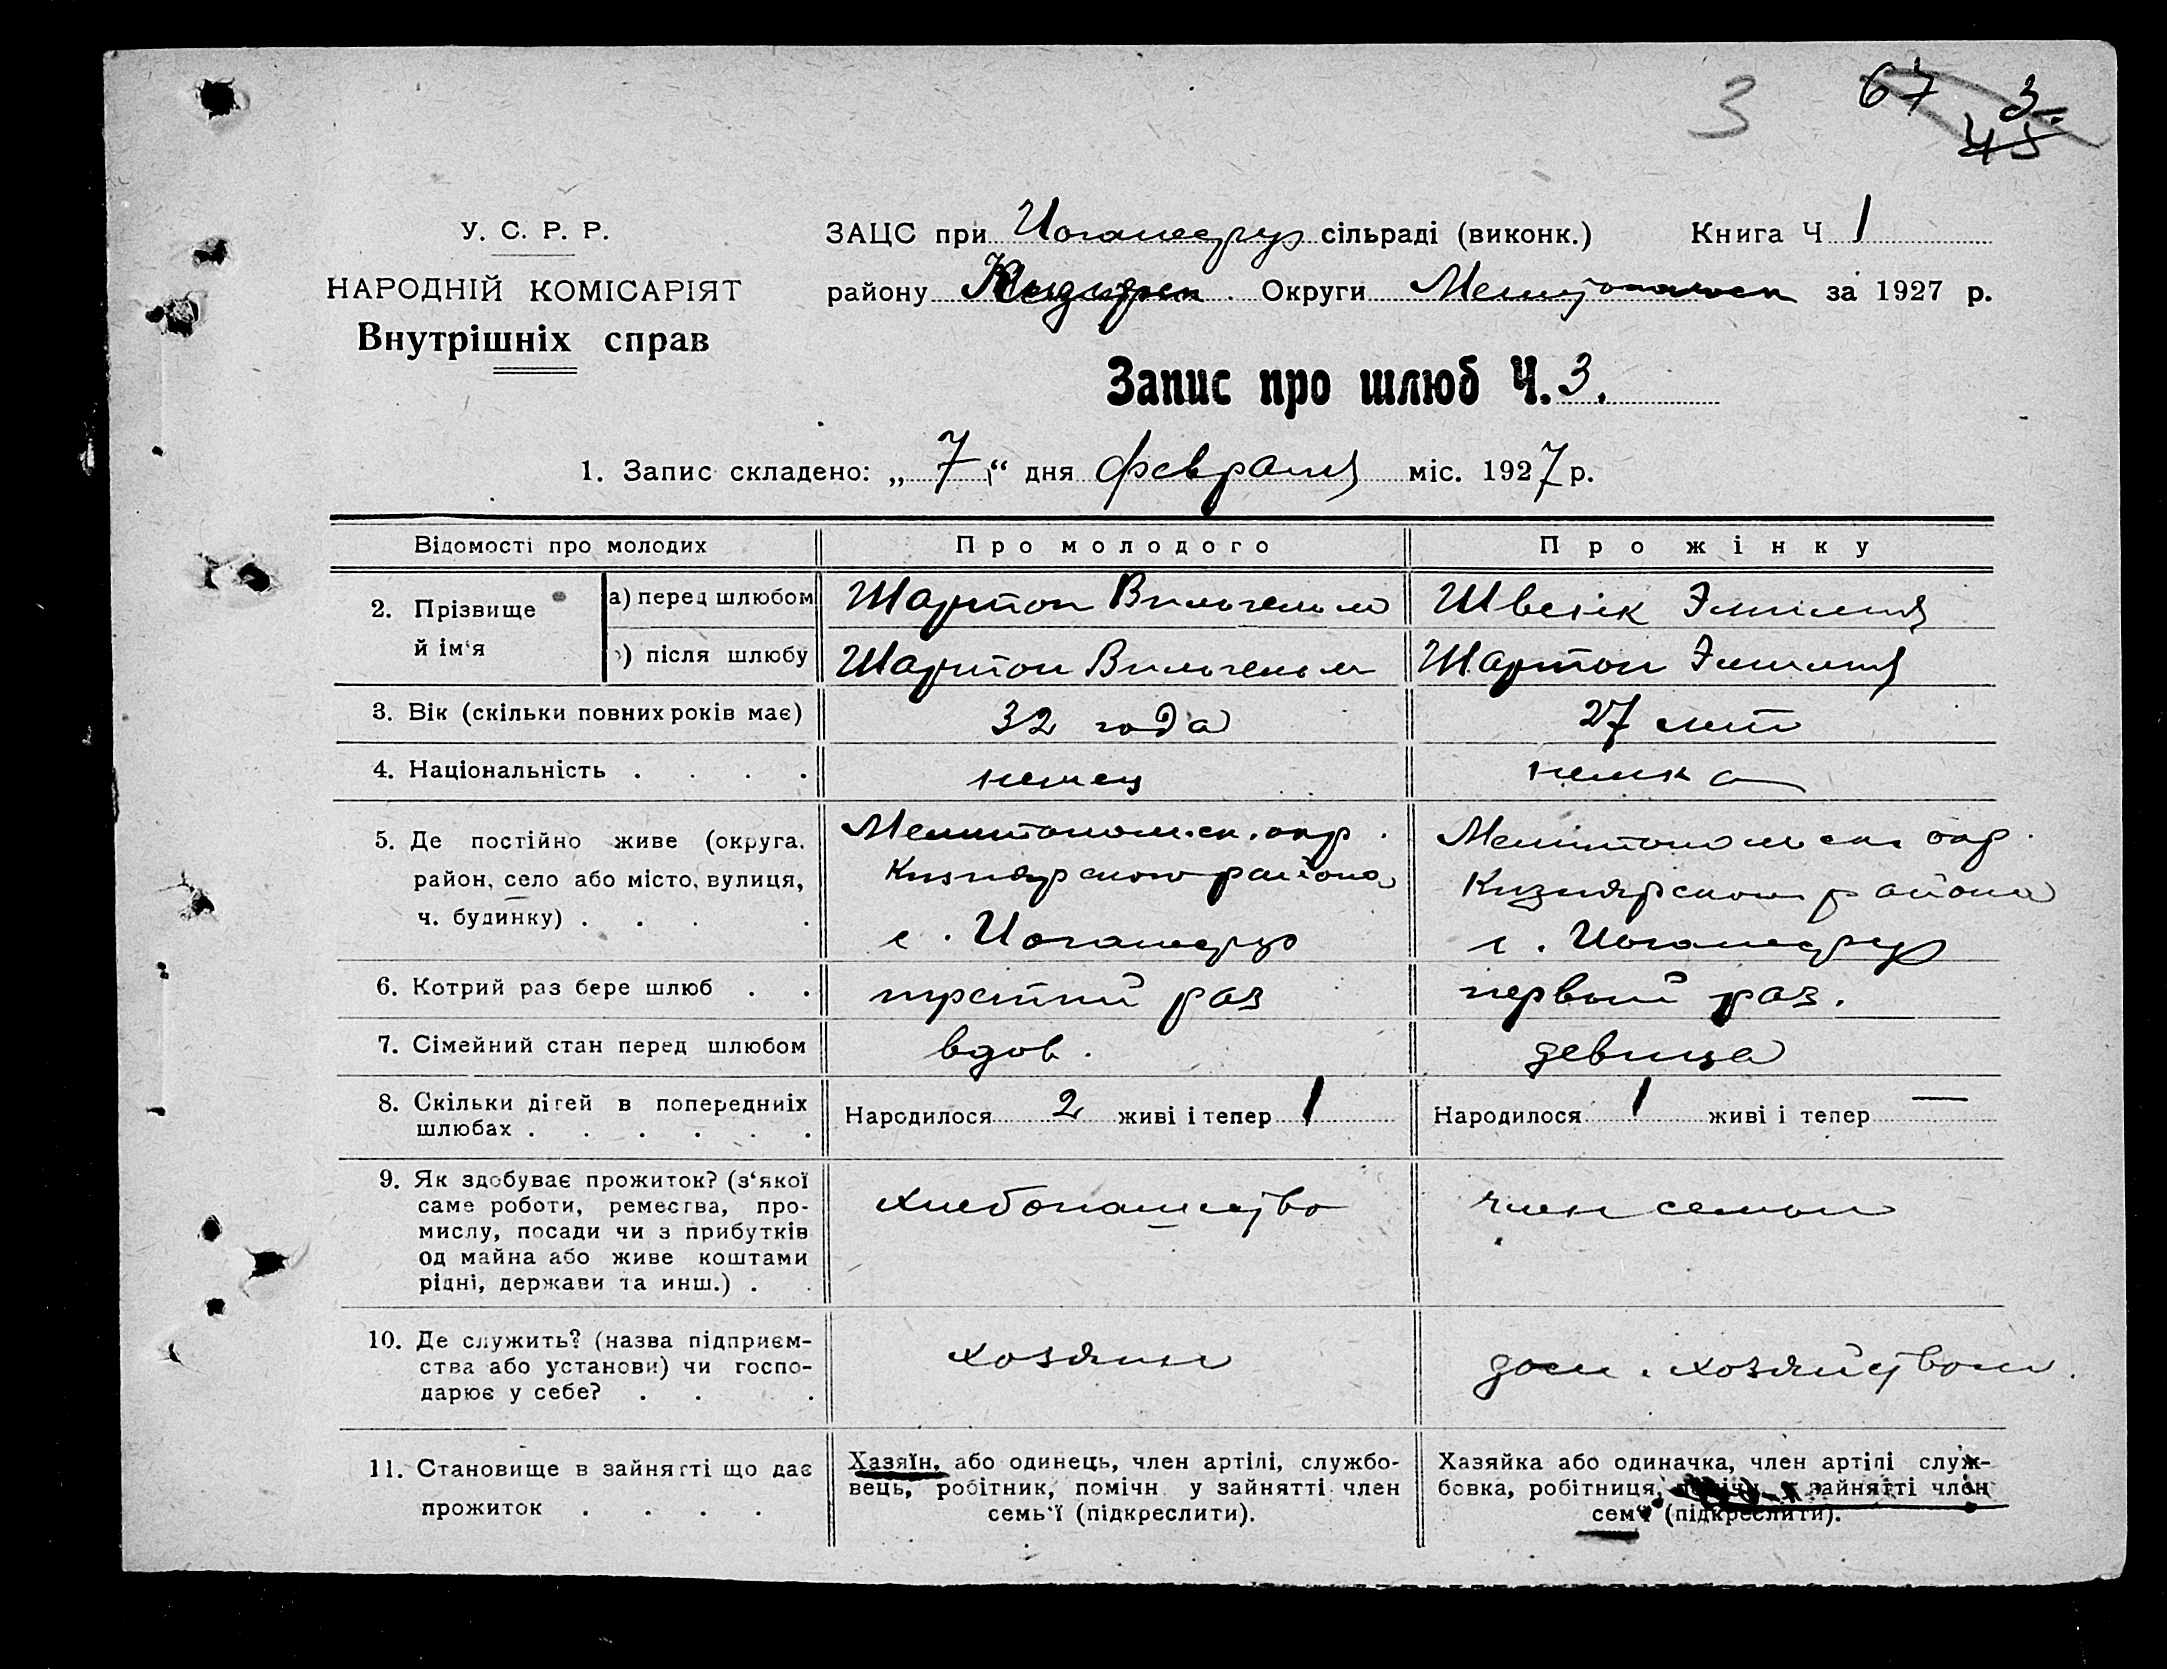 3 67 3.
45
У. С. Р. Р.
НАРОДНІЙ КОМІСАРІЯТ
Внутрішніх справ
ЗАЦС при Иоганесруэ сільраді (виконк.) Книга Ч 1
району Округи за 1927 р.
Запис про шлюб Ч. 3.
1. Запис складено: „ 7 “ дня февраля міс. 1927 р.
Відомості про молодих Про молодого Про жінку
2. Прізвище й ім‘я
а) перед шлюбом Шартон Вильгельм Швейк Эмилия
) після шлюбу Шартон Вильгельм Шартон Эмилия
3. Вік (скільки повних років має) 32 года 27 лет
4. Національність . . . . немец немка
5. Де постійно живе (округа, район, село або місто, вулиця, ч. будинку) . . . .
Мелитопольск. окр.
Кизиярского района
с. Иоганесруэ
Мелитопольск. окр.
Кизиярского района
с. Иоганесруэ
6. Котрий раз бере шлюб . . третий раз первый раз.
7. Сімейний стан перед шлюбом вдов. девица
8. Скільки дітей в попередниіх шлюбах . . . . . .
Народилося 2 живі і тепер 1
Народилося 1 живі і тепер —
9. Як здобуває прожиток? (з‘якої
саме роботи, ремества, про-
мислу, посади чи з прибутків
од майна або живе коштами
рідні, держави та инш.) . .
хлебопашество
член семьи
10. Де служить? (назва підприєм-
ства або установи) чи госпо-
дарює у себе? . . .
хозяин
дом. хозяйством
11. Становище в зайнятті що дає
прожиток . . . .
Хазяїн, або одинець, член артілі, службо-
вець, робітник, помічн. у зайнятті член
семь‘ї (підкреслити).
Хазяйка або одиначка, член артілі служ-
бовка, робітниця, зайнятті член
сем‘ї (підкреслити).